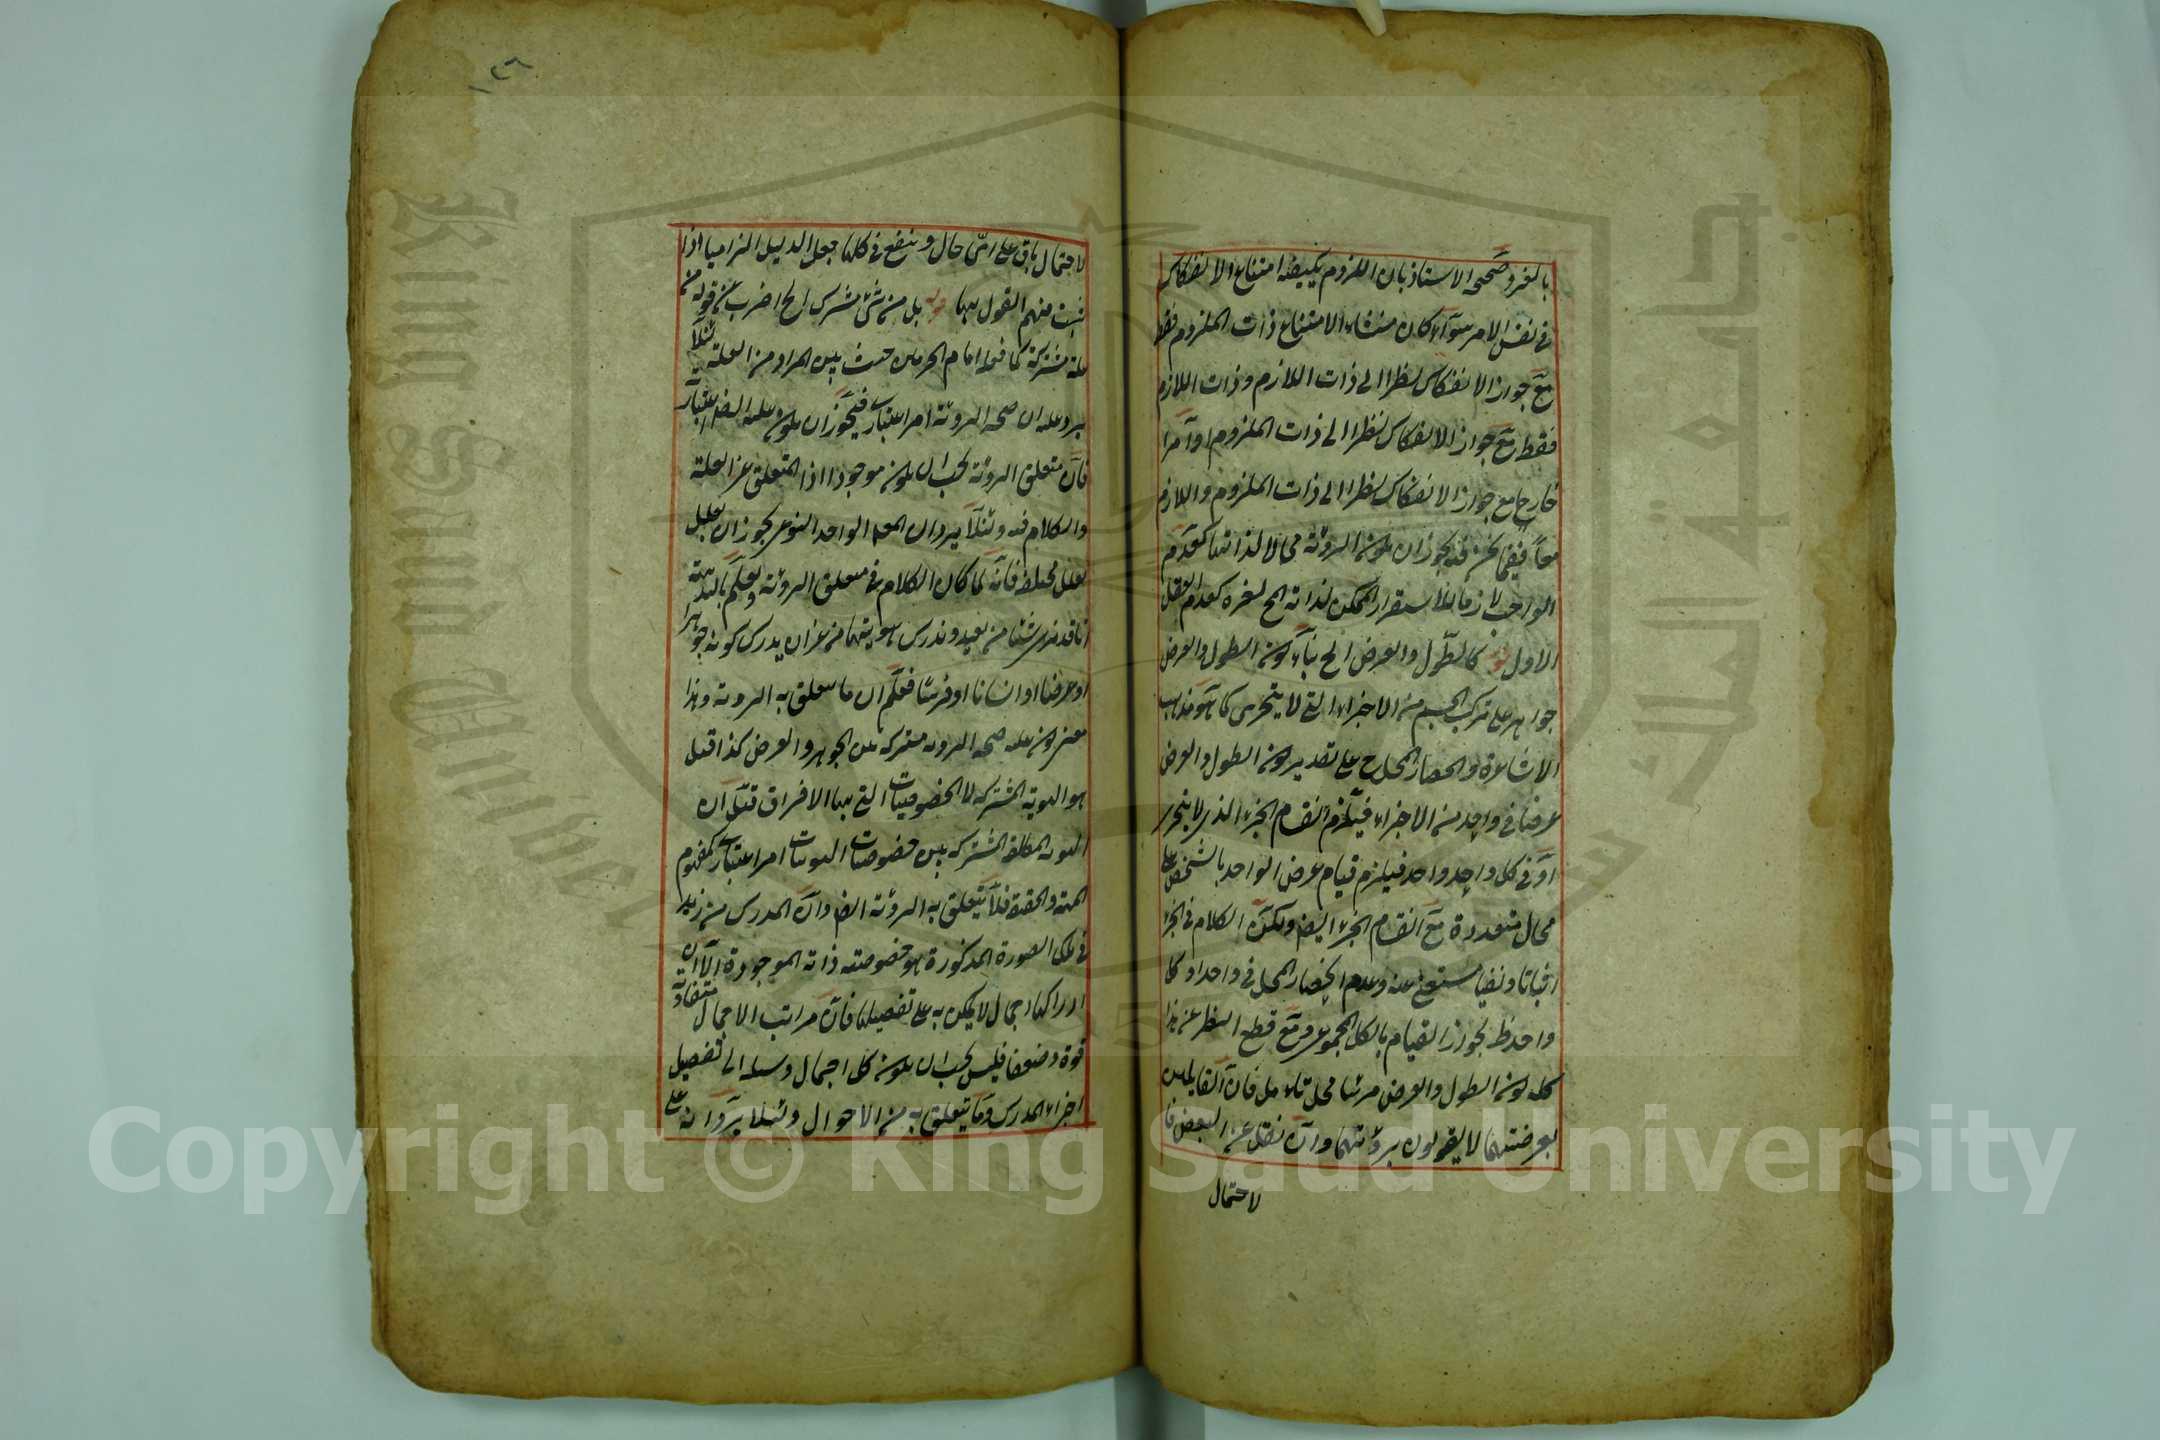 بالغير وصححه الاستاذ بان اللزوم يكفيه امتناع الانفكاك
في نفس الامر سوآء كان منشاء الامتناع ذات الملزوم فقط
مع جواز الانفكاك نظرا الى ذات اللازم وذات اللازم
فقط مع جواز الانفكاك نظرا الى ذات الملزوم او امرا
خارج مع جواز الانفكاك نظرا الى ذات الملزوم واللازم
معاً ففيما نحن فيه يجوز ان يكون الروئة محالا لذاتها كعدم
الواجب لازما لاستقرار الممكن لذاته الخ لغيره كعدم العقل
الاول قوله كالطول والعرض الخ بناء كون الطول والعرض
جواهر على تركب الجسم من الاجزاء التي لا يتجزى كما هو مذهب
الاشاعرة وانحصار المحل ح على تقدير كون الطول والعرض
عرضا في واحد من الاجزاء فيلزم انقسام الجزء الذي لا يتجزى
او في كل واحد واحد فيلزم قيام عرض الواحد بالشخص على
محال متعددة مع انقسام الجزء ايضا ولكن الكلام في الجزء
اثباتا ونفيا مستغنى عنه وعدم انحصار المحل في واحد او كل
واحد ظ لجواز القيام بالكل المجموعى ومع قطع النظر عن هذا
كله كون الطول والعرض مرئيا محل تامل فان القايلين
بعرضيتهما لا يقولون بروئتهما وان نقل عن البعض فا
لاحتمال
١٢٦
لاحتمال باق على اى حال وينفع في كلها جعل الدليل الزاميا اذا
ثبت منهم القول بها قوله بل من شئ مشترك الخ اضرب عن قوله من
علة مشتركة كما فعله امام الحرمين حيث بين المراد من العلة لئلا
يرد عليه ان صحة الروئة امر اعتبارى فيجوز ان يكون علته ايضا اعتبارى
فان متعلق الروئة يجب ان يكون موجودا اذا المتعلق غير العلة
والكلام فيه ولئلا يرد ان المعلول الواحد النوعى يجوز ان يعلل
بعلل مختلفة فانه لما كان الكلام في متعلق الروئة ويعلم بالبديهة
انا قد نرى شيئا من بعيد وندرك هويتهما من غير ان يدرك كونه جوهرا
او عرضا او انسانا او فرسا فعلم ان ما يتعلق به الروئة وهذا
معنى كون علة صحة الروئة مشتركة بين الجوهر والعرض كذا قيل
هو الهوية المشتركة لا الخصوصيات التي بها الافراق قيل ان
الهوية المطلقة المشتركة بين خصوصيات الهويات امر اعتبارى كمفهوم
المهية والحقيقة فلا يتعلق به الروئة ايضا وان المدرك من زيد
في تلك الصورة المذكورة هو خصوصية ذاته الموجودة الا ان
ادراكها اجمالى لا يمكن به على تفصيلها فان مراتب الاجمال متفاوتة
قوة وضعفا فليس يجب ان يكون كل اجمال وسيلة الى تفصيل
اجزاء المدرك وما يتعلق به من الاحوال ولئلا يرد انه على
King Saud University
Copyright © King Saud University